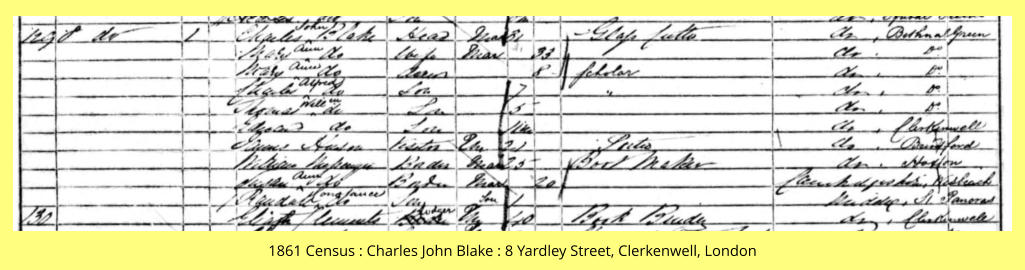 129 8 do 1 Charles John Blake Head Mar 31 Glass Cutter do, Bethnal Green
Mary Ann do Wife Mar 33 do, do
Mary Ann do Daur 8 Scholar do, do
Charles Alfred do Son 7 " do, do
Thomas Willm do Son 5 do, do
Edward do Son do, Clerkenwell
James Visitor Un 21 do,
William Boarder Mar 25 Boot Maker do, Hoxton
Ann do Boarder Mar 20 Cambridgeshire, Wisbeach
Constance do Son 1 Middx, St Pancras
130 Clements Lodger Un 40 Book Binder do, Clerkenwell
1861 Census : Charles John Blake : 8 Yardley Street, Clerkenwell, London